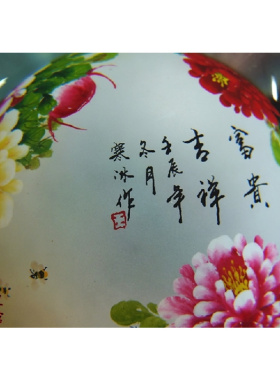 富貴
吉祥
壬辰年
冬月
寒冰作